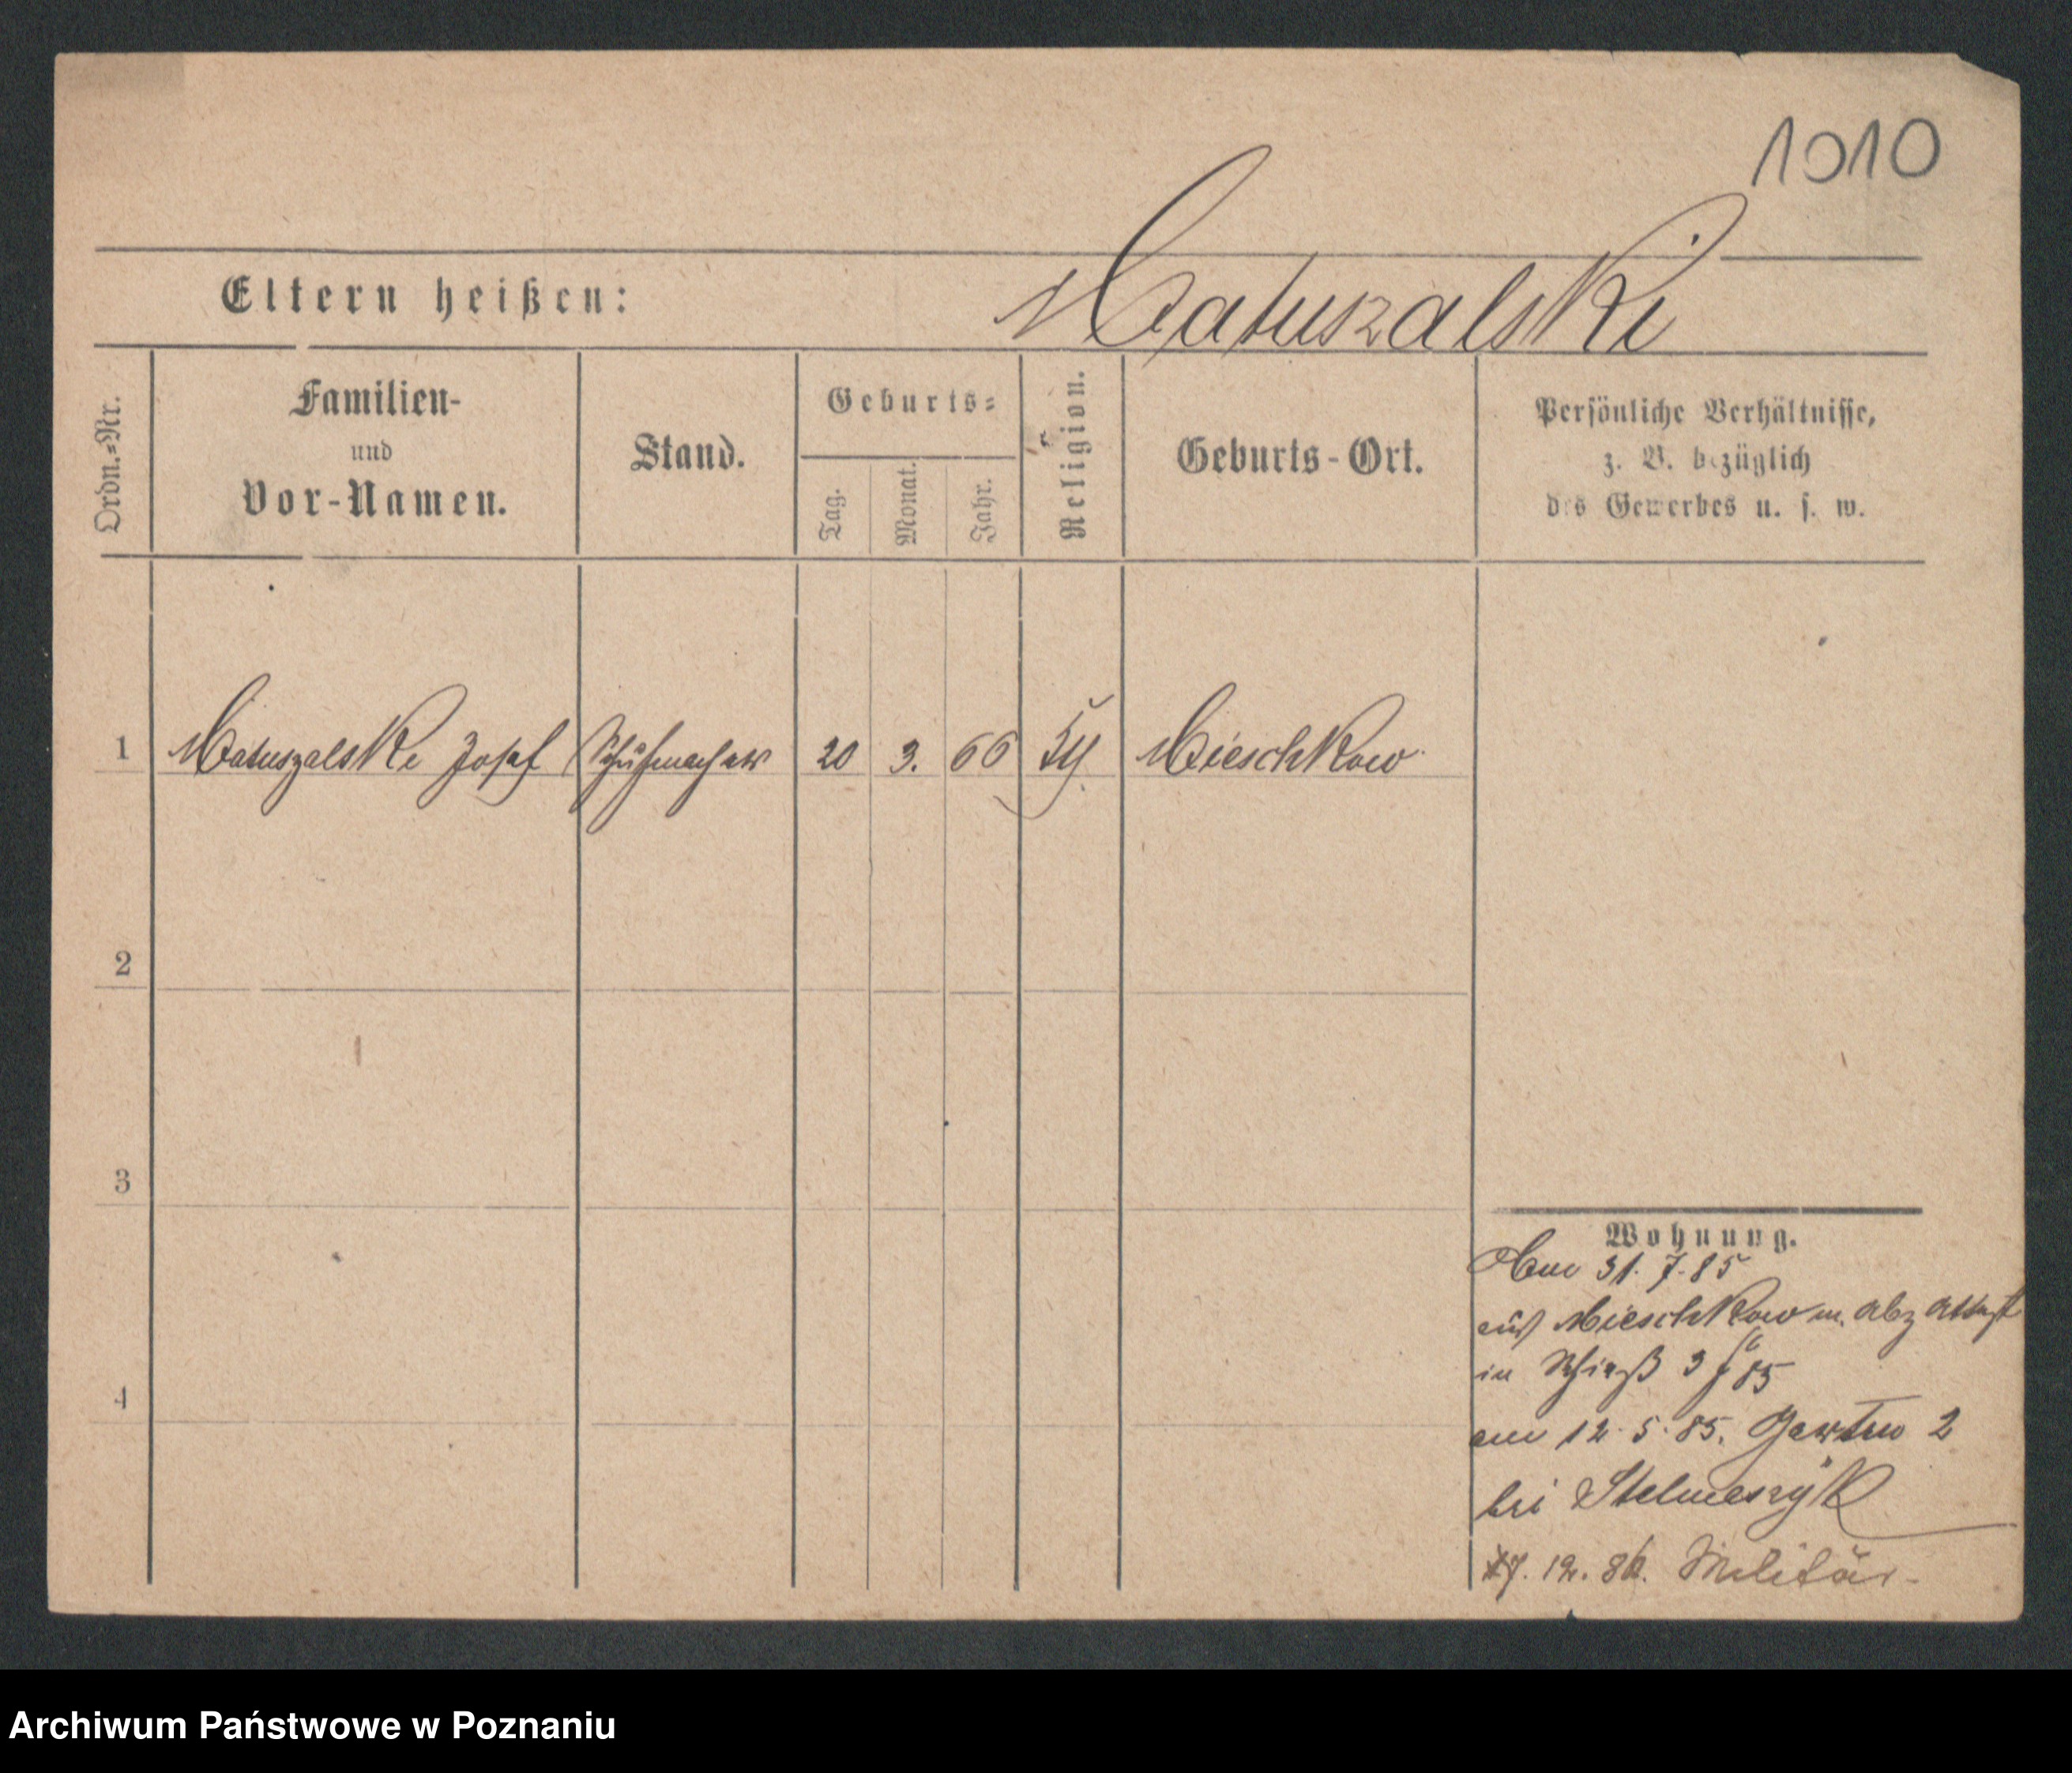 1010
Matuszalski
Eltern heißen:
Ordn.=Nr.
Familien-
und
Vor-Namen.
Stand.
Geburts=
Tag.
Monat.
Jahr.
Religion.
Geburts-Ort.
Persönliche Verhältnisse,
z. B. bezüglich
des Gewerbes u. s. w.
1 Matuszalski Josef Schuhmacher 20 3. 66 Mieschkow
2
3
4
Wohnung.
Am 31. 7. 85
aus Mieschkow m. Abz Attest
in Schieß 3
am 12. 5. 85. Garten 2
bei
12. 86. Militär.
Archiwum Państwowe w Poznaniu